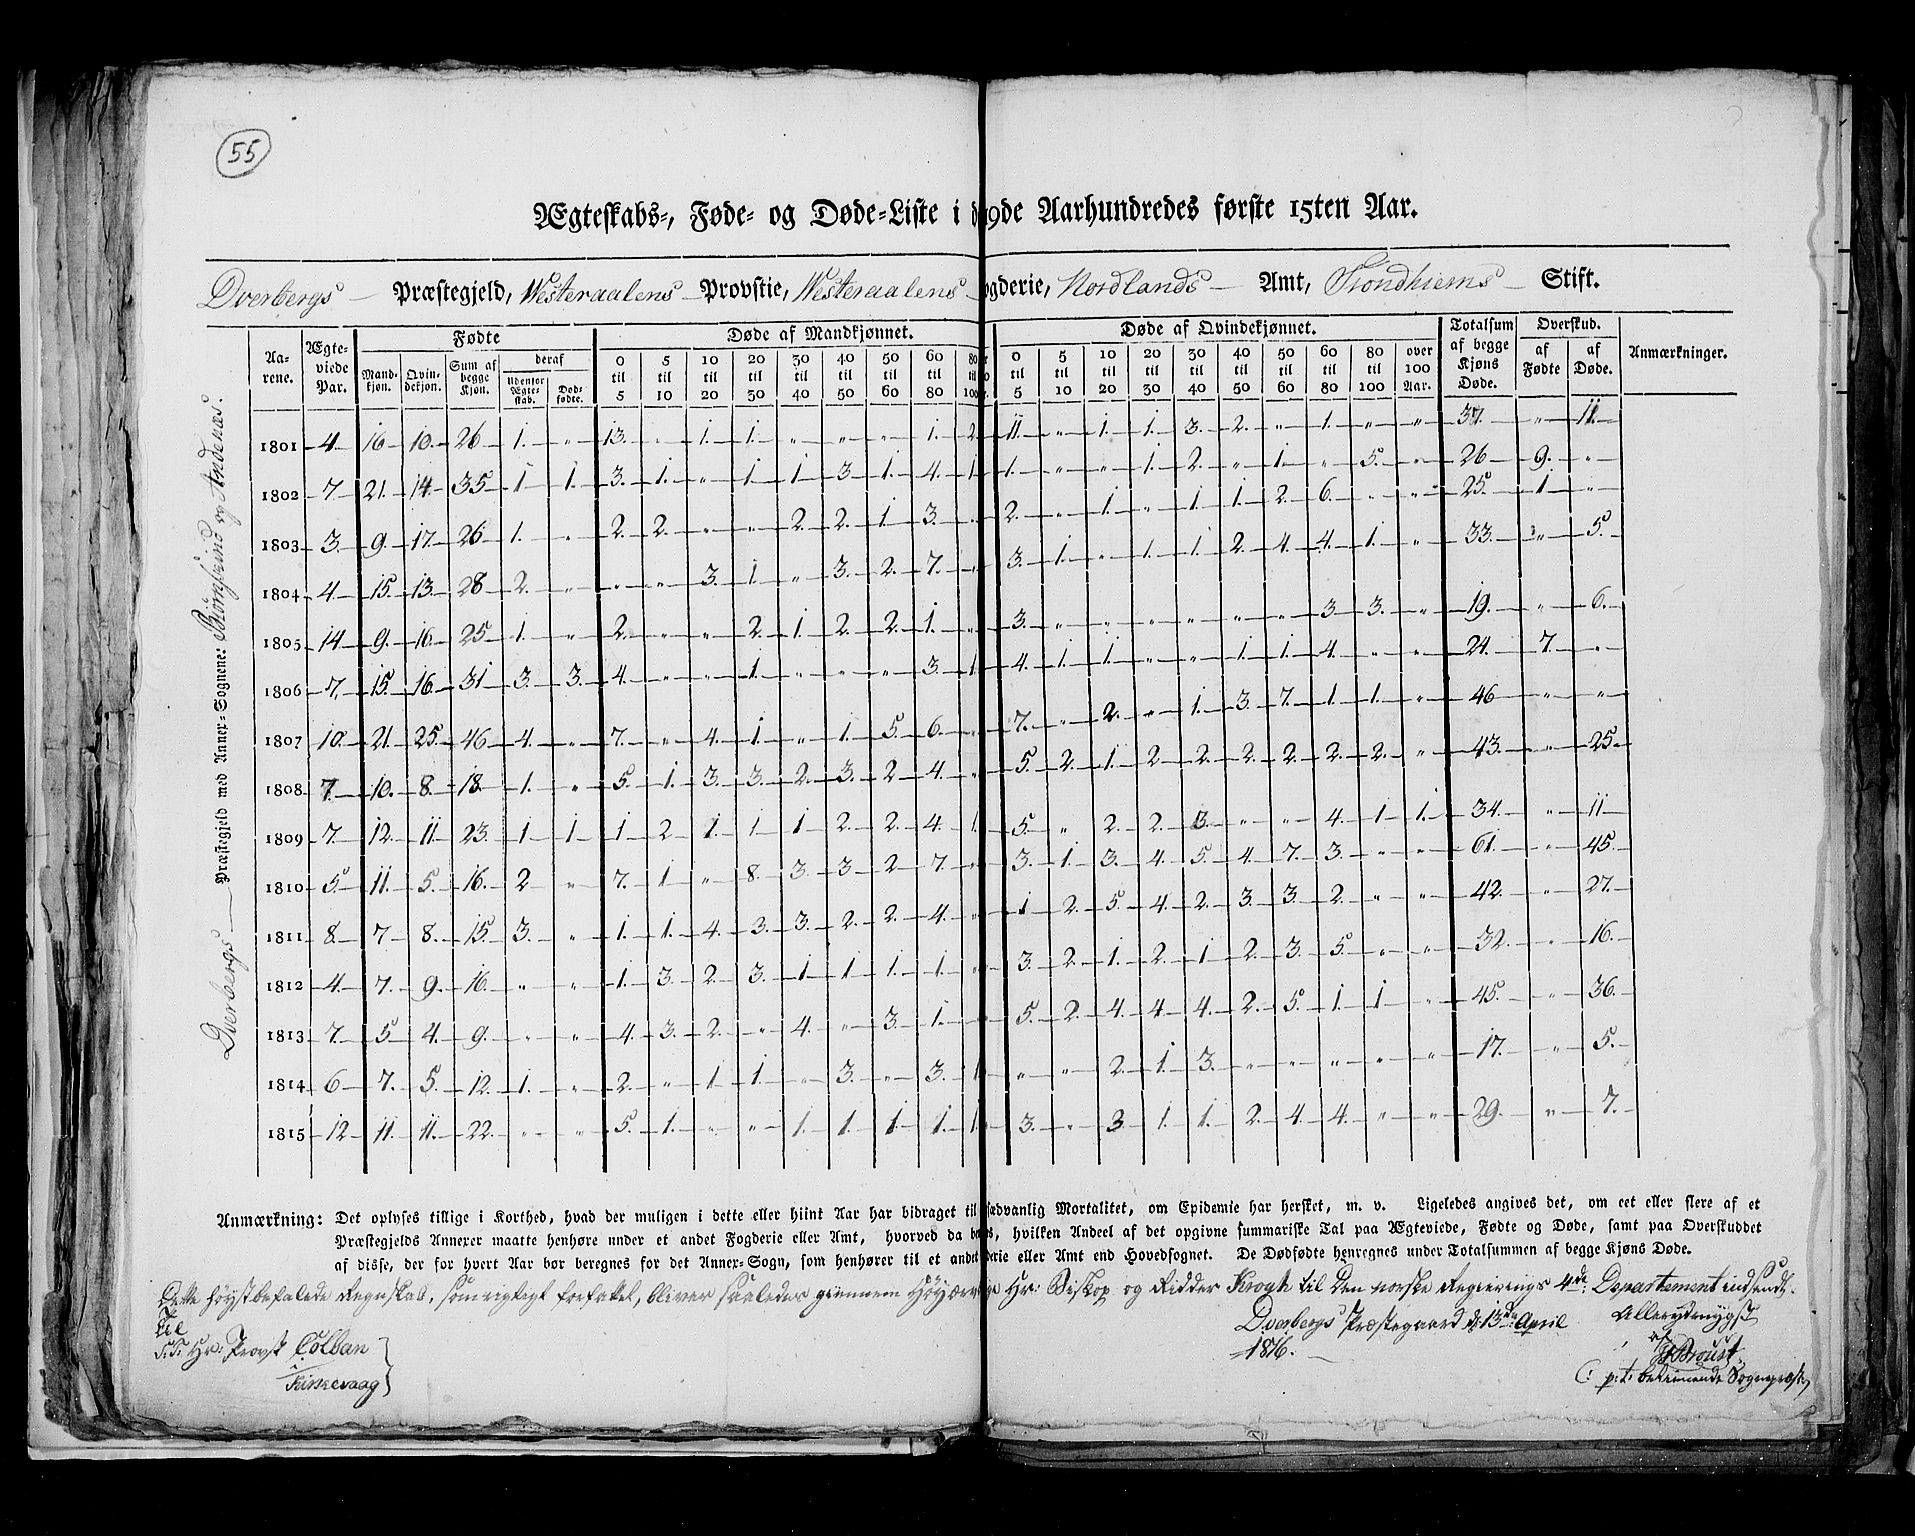 55
Ægteskabs-, Føde- og Døde-Liste i d 19de Aarhundredes første 15ten Aar.
Dverbergs Præstegjeld, Westeraalens Provstie, Westeraalens ogderie, Nordlands Amt, Trondhiems Stift.
Dverbergs Præstegjeld med Anner-Sognene: Biörnskind og Andenæs.
Aa-rene. Ægte-viede Par. Fødte Døde af Mandkjønnet. Døde af Qvindekjønnet. Totalsum af begge Kjøns Døde. Overskud. Anmærkninger.
Mand-kjøn. Qvin-dekjøn. Sum af begge Kjøn. deraf Udenfor Ægte-skab. Død-fødte. af Fødte af Døde.
0 til 5 5 til 10 10 til 20 20 til 30 30 til 40 40 til 50 50 til 60 60 til 80 80 til 100 0 til 5 5 til 10 10 til 20 20 til 30 30 til 40 40 til 50 50 til 60 60 til 80 80 til 100 over 100 Aar.
1801 4. 16 10. 26 1. " 13. " 1. 1. " " " 1. 2. 11. " 1. 1. 3. 2. " 1. " " 37. " 11.
1802 7 21. 14. 35 1 1. 3. 1. " 1 1 3 1. 4. 1 1. " " 1. 2. " 1. " 5. " 26 9. "
1803 3. 9. 17. 26 1. " 2. 2. " " 2. 2. 1 3. " 2. " 1. " 1 1. 2. 6. " " 25. 1 "
1804 4. 15. 13. 28 2. " " " 3. 1 " 3. 2. 7. " 3. 1. " 1. 1. 2. 4. 4. 1. " 33. " 5.
1805 14 9. 16. 25 1. " 2. " " 2. 1. 2. 2. 1. " 3. " " " " " " 3 3. " 19. " 6.
1806 7. 15. 16. 31 3. 3. 4. " " 1. " " " 3. 1 4. 1. 1. " " 1. 1. 4. " " 24. 7. "
1807 10. 21. 25. 46 4. " 7. " 4. 1. " 1. 5. 6. " 7. " 2. " 1. 3. 7. 1. 1. " 46 " "
1808 7. 10. 8. 18. 1. " 5. 1. 3. 3. 2. 3. 2 4. " 5. 2. 1. 2 2. 2. 2. 2. 2. " 43. " 25.
1809 7. 12. 11. 23. 1 1 1 2 1. 1 1 2. 2. 4. 1. 5. " 2. 2. 3. " " 4. 1 1. 34. " 11
1810 5. 11. 5. 16. 2 " 7. 1 " 8. 3. 3 2 7. " 3. 1. 3. 4. 5. 4. 7. 3. " " 61. " 45.
1811 8. 7 8. 15. 3. " 1. 1. 4. 3. 3. 2. 2. 4. " 1 2. 5. 4. 2. 3. 3. 2. " " 42. " 27.
1812 4. 7. 9. 16. " " 1. 3. 2. 3. 1 1 1. 1. " 3. 2. 1. 2. 1 2. 3. 5. " " 32. " 16.
1813 7. 5 4. 9. " " 4. 3. 2. " 4. " 3. 1. 5. 2. 4. 4. 4. 2. 5. 1 1 " 45. " 36.
1814 6 7. 5. 12. 1. " 2. " 1 1. " 3. " 3. 1 " " 2. 1 3. " " " " " 17. " 5.
1815 12 11. 11. 22. " " 5. 1. " " 1. 1. 1 1. 1. 3. " 3. 1. 1. 2. 4 4. " " 29. " 7.
Anmærkning: Det oplyses tillige i Korthed, hvad der muligen i dette eller hiint Aar har bidraget til sædvanlig Mortalitet, om Epidemie har hersket, m. v. Ligeledes angives det, om eet eller flere af et
Præstegjelds Annerer maatte henhøre under et andet Fogderie eller Amt, hvorved da be s, hvilken Andeel af det opgivne summariske Tal paa Ægteviede, Fødte og Døde, samt paa Overskuddet
af disse, der for hvert Aar bør beregnes for det Anner-Sogn, som henhører til et andet derie eller Amt end Hovedsognet. De Dødfødte henregnes under Totalsummen af begge Kjøns Døde.
Dette höystbefalede Regnskab, som rigtigt forfattet, bliver saaledes giennem Höyærv Hr. Biskop og Ridder Krogh til den norske Regierings 4de Departement indsendt.
Dverbergs Præstegaard d: 13de April Allerydmygst
1816. af
Til
S.T. Hr: Provst Colban
i
Kinsevaag
Broust
p: t: betienende Sognepræst